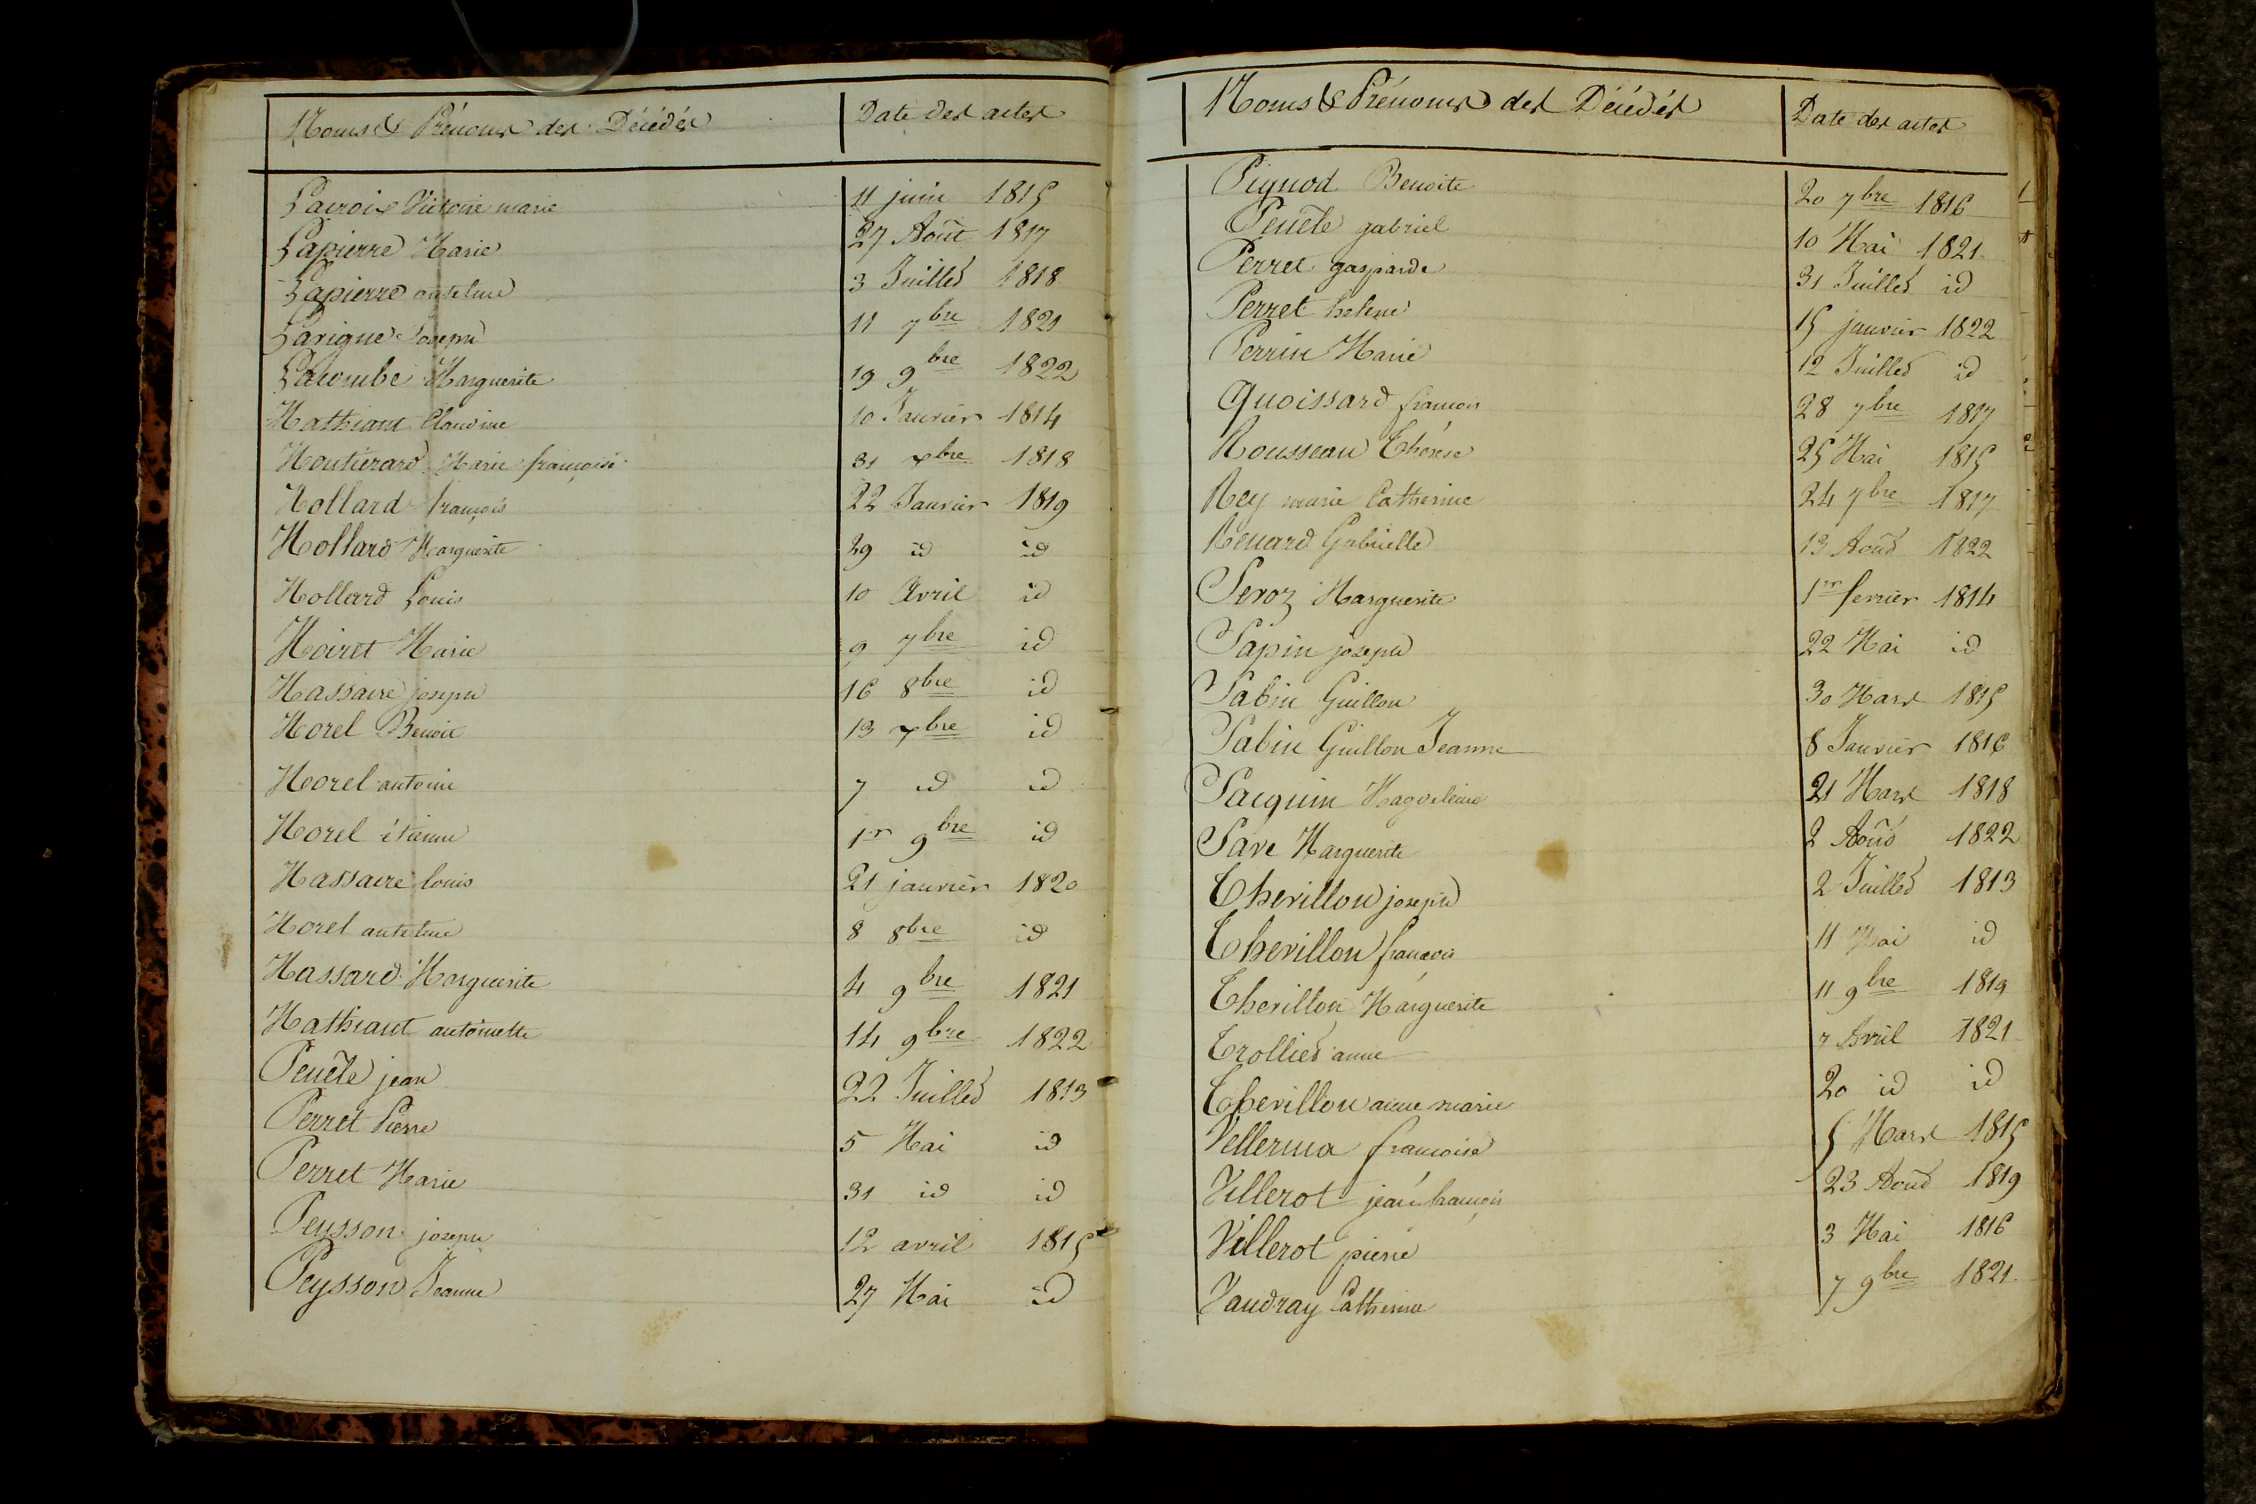 Noms & Prénoms des Décédés Date des actes
Lacroix Victoire marie 11 juin 1815
Lapierre Marie 27 Août 1817
Lapierre antelme 3 Juillet 1818
Larigue Joseph 11 7bre 1821
Lacombe Marguerite 19 9bre 1822
Mathiant Claudine 10 Janvier 1814
Montierard Marie françoise 31 xbre 1818
Mollard françois 22 Janvier 1819
Mollard Marguerite 29 id id
Mollard Louis 10 Avril id
Moiret Marie 9 7bre id
Massacre joseph 16 8bre id
Morel Benoit 13 xbre id
Morel antoine 7 id id
Morel étienne 1er 9bre id
Massacre louis 21 janvier 1820
Morel antelme 8 8bre id
Massard Marguerite 4 9bre 1821
Mathiant antoinette 14 9bre 1822
Penèle jean 22 Juillet 1813
Perret Pierre 5 Mai id
Perret Marie 31 id id
Peysson joseph 12 avril 1815
Peysson Jeanne 27 Mai id
Noms & Prénoms des Décédés Date des actes
Pignod Benoite 20 7bre 1816
Penèle gabriel 10 Mai 1821
Perret gasparde 31 Juillet id
Perret helene 15 janvier 1822
Perrin Marie 12 Juillet id
Quoissard françois 28 7bre 1817
Rousseau Thérèse 25 Mai 1815
Rey marie Catherine 24 7bre 1817
Renard Gabrielle 13 Août 1822
Seroz Marguerite 1er fevrier 1814
Sapin joseph 22 Mai id
Sabin Guillon 30 Mars 1815
Sabin Guillon Jeanne 8 Janvier 1816
Sacquin Magdeleine 21 Mars 1818
Save Marguerite 2 Août 1822
Thevillon joseph 2 Juillet 1813
Thevillon françois 11 Mai id
Thevillon Marguerite 11 9bre 1819
Trolliet anne 7 Avril 1821
Thevillon anne marie 20 id id
Vellerma françoise 5 Mars 1815
Villerot jean françois 23 Août 1819
Villerot pierre 3 Mai 1816
Vaudray Catherine 7 9bre 1821